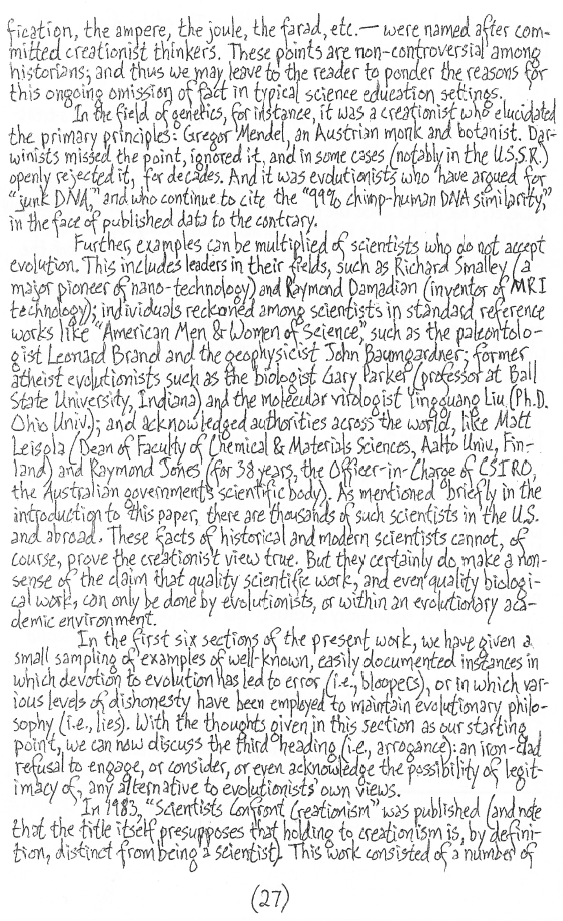 fication, the ampere, the joule, the farad, etc. — were named after com-
mitted creationist thinkers. These points are non-controversial among
historians; and thus we may leave to the reader to ponder the reasons for
this ongoing omission of fact in typical science education settings.
In the field of genetics, for instance, it was a creationist who elucidated
the primary principles: Gregor Mendel, an Austrian monk and botanist. Dar-
winists missed the point, ignored it, and in some cases (notably in the U.S.S.R.)
openly rejected it, for decades. And it was evolutionists who have argued for
"junk DNA," and who continue to cite the "99% chimp-human DNA similarity,"
in the face of published data to the contrary.
Further, examples can be multiplied of scientists who do not accept
evolution. This includes leaders in their fields, such as Richard Smalley (a
major pioneer of nano-technology) and Raymond Damadian (inventor of MRI
technology); individuals reckoned among scientists in standard reference
works like "American Men & Women of Science," such as the paleontolo-
gist Leonard Brand and the geophysicist John Baumgardner; former
atheist evolutionists such as the biologist Gary Parker (professor at Ball
State University, Indiana) and the molecular virologist Yingguang Liu (Ph.D.
Ohio Univ.); and acknowledged authorities across the world, like Matt
Leisola (Dean of Faculty of Chemical & Materials Sciences, Aalto Univ., Fin-
land) and Raymond Jones (for 38 years, the Officer-in-Charge of CSIRO,
the Australian government's scientific body). As mentioned briefly in the
introduction to this paper, there are thousands of such scientists in the U.S.
and abroad. These facts of historical and modern scientists cannot, of
course, prove the creationist view true. But they certainly do make a non-
sense of the claim that quality scientific work, and even quality biologi-
cal work, can only be done by evolutionists, or within an evolutionary aca-
demic environment.
In the first six sections of the present work, we have given a
small sampling of examples of well-known, easily documented instances in
which devotion to evolution has led to error (i.e., bloopers), or in which var-
ious levels of dishonesty have been employed to maintain evolutionary philo-
sophy (i.e., lies). With the thoughts given in this section as our starting
point, we can now discuss the third heading (i.e., arrogance): an iron-clad
refusal to engage, or consider, or even acknowledge the possibility of legit-
imacy of, any alternative to evolutionists' own views.
In 1983, "Scientists Confront Creationism" was published (and note
that the title itself presupposes that holding to creationism is, by defini-
tion, distinct from being a scientist). This work consisted of a number of
(27)